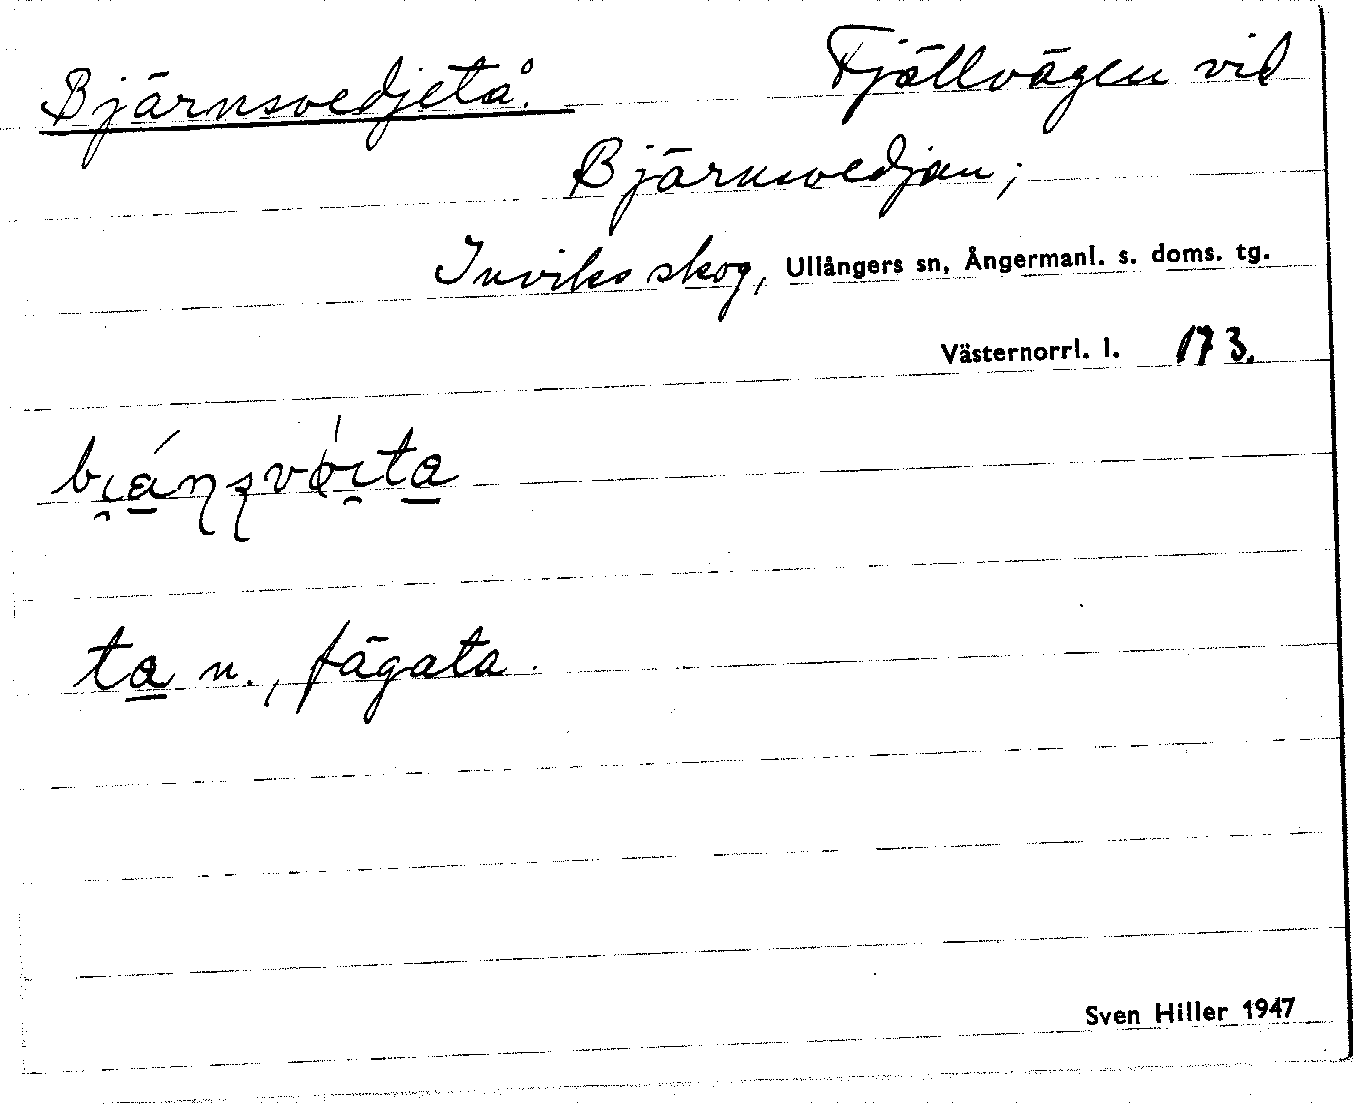 Bjärnsvedjetå. Fjällvägen vid
Bjärnsvedjan;
Inviks skog, Ullångers sn, Ångermanl. s. doms. tg.
Västernorrl. l. 173.
ta n., fägata.
Sven Hiller 1947